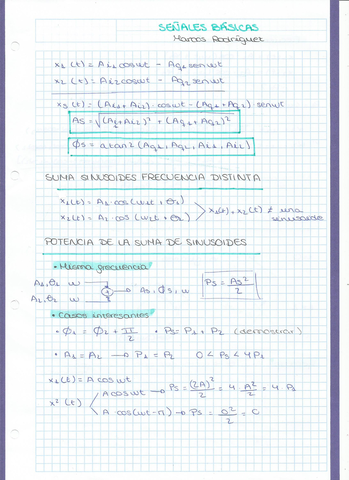 SEÑALES BÁSICAS
Marcos Rodríguez
x₁(t) = Ai₁ cos ωt − Aq₁ sen ωt
x₂(t) = Ai₂ cos ωt − Aq₂ sen ωt
x₃(t) = (Ai₁ + Ai₂) · cos ωt − (Aq₁ + Aq₂) sen ωt
As = √(Ai + Ai₂)² + (Aq₁ + Aq₂)²
Φs = atan2 (Aq₁, Aq₂, Ai₁, Ai₂)
SUMA SINUSOIDES FRECUENCIA DISTINTA
x₁(t) = A₁ cos (ω₁t + θ₁)
x₂(t) = A₂ · cos (ω₂t + θ₂)
x₁(t) + x₂(t) ≠ una sinusoide
POTENCIA DE LA SUMA DE SINUSOIDES
• Misma frecuencia
A₁, θ₁ ω
A₂, θ₂ ω
→ As, Φs, ω
Ps = As²/2
• Casos interesantes
· Φ₁ = Φ₂ + π/2 · Ps = P₁ + P₂ (demostrar)
· A₁ = A₂ → P₁ = P₂ 0 < Ps < 4P₁
x₁(t) = A cos ωt
x²(t)
A cos ωt → Ps = (2A)²/2 = 4 A²/2 = 4 Ps
A cos(ωt − π) → Ps = 0²/2 = 0